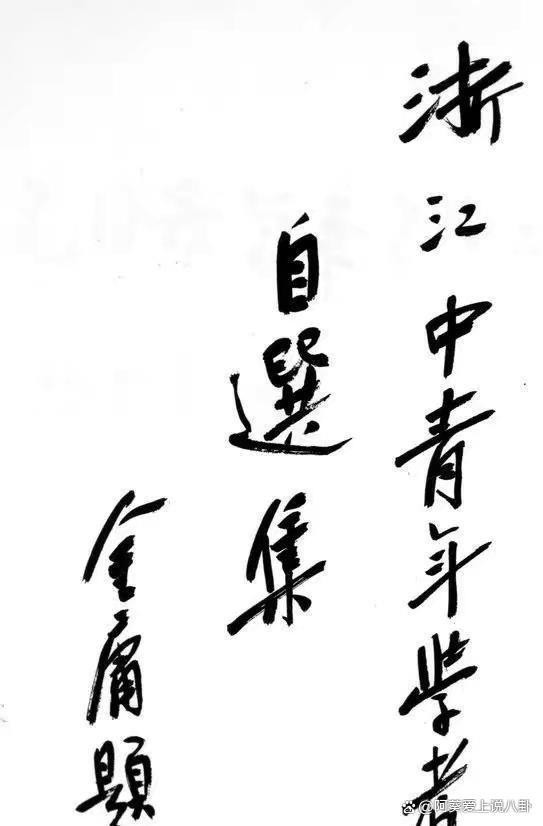 浙江中青年学者
自選集
金庸題
@阿葵爱上说八卦